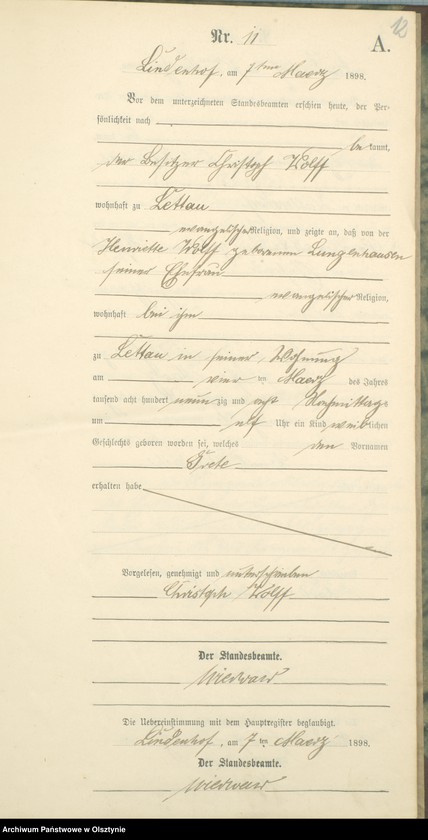 12
Nr. 11
A.
Lindenhof, am 7ten Maerz 1898.
Vor dem unterzeichneten Standesbeamten erschien heute, der Per-
sönlichkeit nach
be kannt,
der Besitzer Christoph Wolff
wohnhaft zu Lettau
evangelischer Religion, und zeigte an, daß von der
Henriette Wolff geborenen Lungenhausen
seiner Ehefrau
evangelischer Religion,
wohnhaft bei ihm
zu Lettau in seiner Wohnung
am vier ten Maerz des Jahres
tausend acht hundert neun zig und acht Nachmittags
um elf Uhr ein Kind weiblichen
Geschlechts geboren worden sei, welches den Vornamen
Grete
erhalten habe
Vorgelesen, genehmigt und unterschrieben
Christoph Wolff
Der Standesbeamte.
Die Uebereinstimmung mit dem Hauptregister beglaubigt.
Lindenhof, am 7 ten Maerz 1898.
Der Standesbeamte.
Archiwum Państwowe w Olsztynie